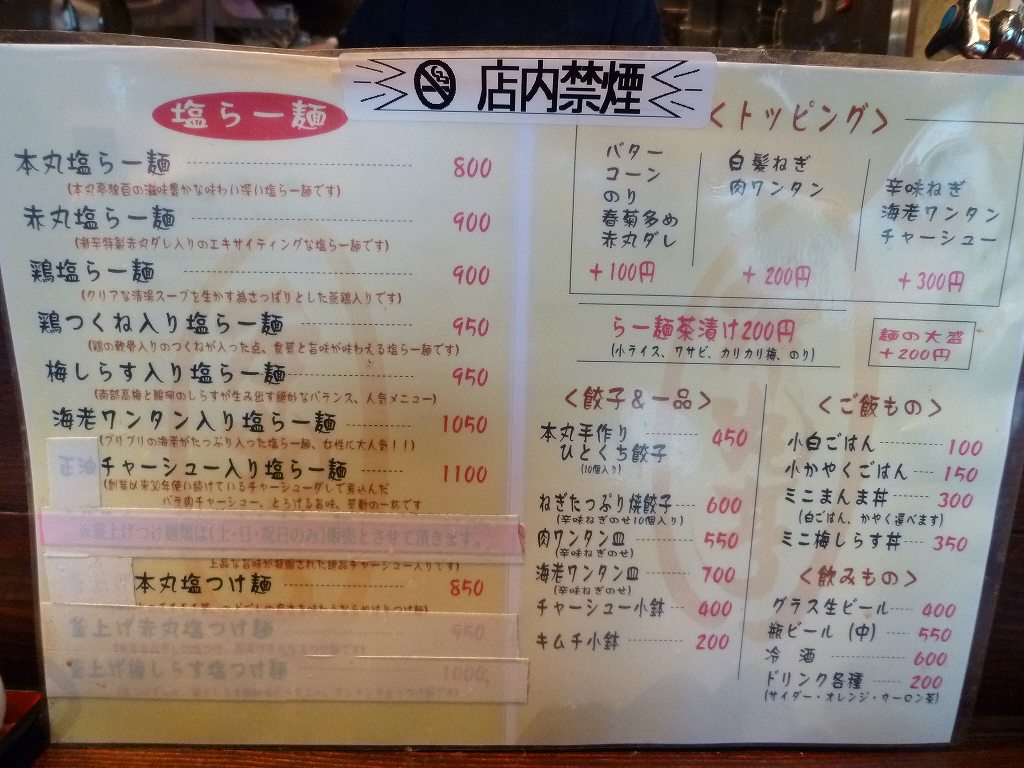 店内禁煙
塩らー麺
本丸塩らー麺 800
(本丸亭独自の滋味豊かな味わい深い塩らー麺です)
赤丸塩らー麺 900
(激辛特製赤丸ダレ入りのエキサイティングな塩らー麺です)
鶏塩らー麺 900
(クリアな清湯スープを生かす為さっぱりとした蒸鶏入りです)
鶏つくね入り塩らー麺 950
(鶏の軟骨入りのつくねが入った点、食感と旨味が味わえる塩らー麺です)
梅しらす入り塩らー麺 950
(南部高梅と駿河のしらすが生み出す絶妙なバランス、人気メニュー)
海老ワンタン入り塩らー麺 1050
(プリプリの海老がたっぷり入った塩らー麺、女性に大人気!!)
正油
チャーシュー入り塩らー麺 1100
(創業以来30年使い続けているチャーシューダレで煮込んだ
バラ肉チャーシュー、とろける旨味、感動の一杯です
※釜上げつけ麺類は(土・日・祝日のみ)販売とさせて頂きます。
上品な旨味が凝縮された絶品チャーシュー入りです)
本丸塩つけ麺 850
釜上げ赤丸塩つけ麺 950
釜上げ梅しらす塩つけ麺 1000
<トッピング>
バター
コーン
のり
春菊多め
赤丸ダレ
+100円
白髪ねぎ
肉ワンタン
+200円
辛味ねぎ
海老ワンタン
チャーシュー
+300円
らー麺茶漬け200円
(小ライス、ワサビ、カリカリ梅、のり)
麺の大盛
+200円
<餃子&一品>
本丸手作り
ひとくち餃子 450
(10個入り)
ねぎたっぷり焼餃子 600
(辛味ねぎのせ10個入り)
肉ワンタン皿 550
(辛味ねぎのせ)
海老ワンタン皿 700
(辛味ねぎのせ)
チャーシュー小鉢 400
キムチ小鉢 200
<ご飯もの>
小白ごはん 100
小かやくごはん 150
ミニまんま丼 300
(白ごはん、かやく選べます)
ミニ梅しらす丼 350
<飲みもの>
グラス生ビール 400
瓶ビール (中) 550
冷 酒 600
ドリンク各種 200
(サイダー・オレンジ・ウーロン茶)